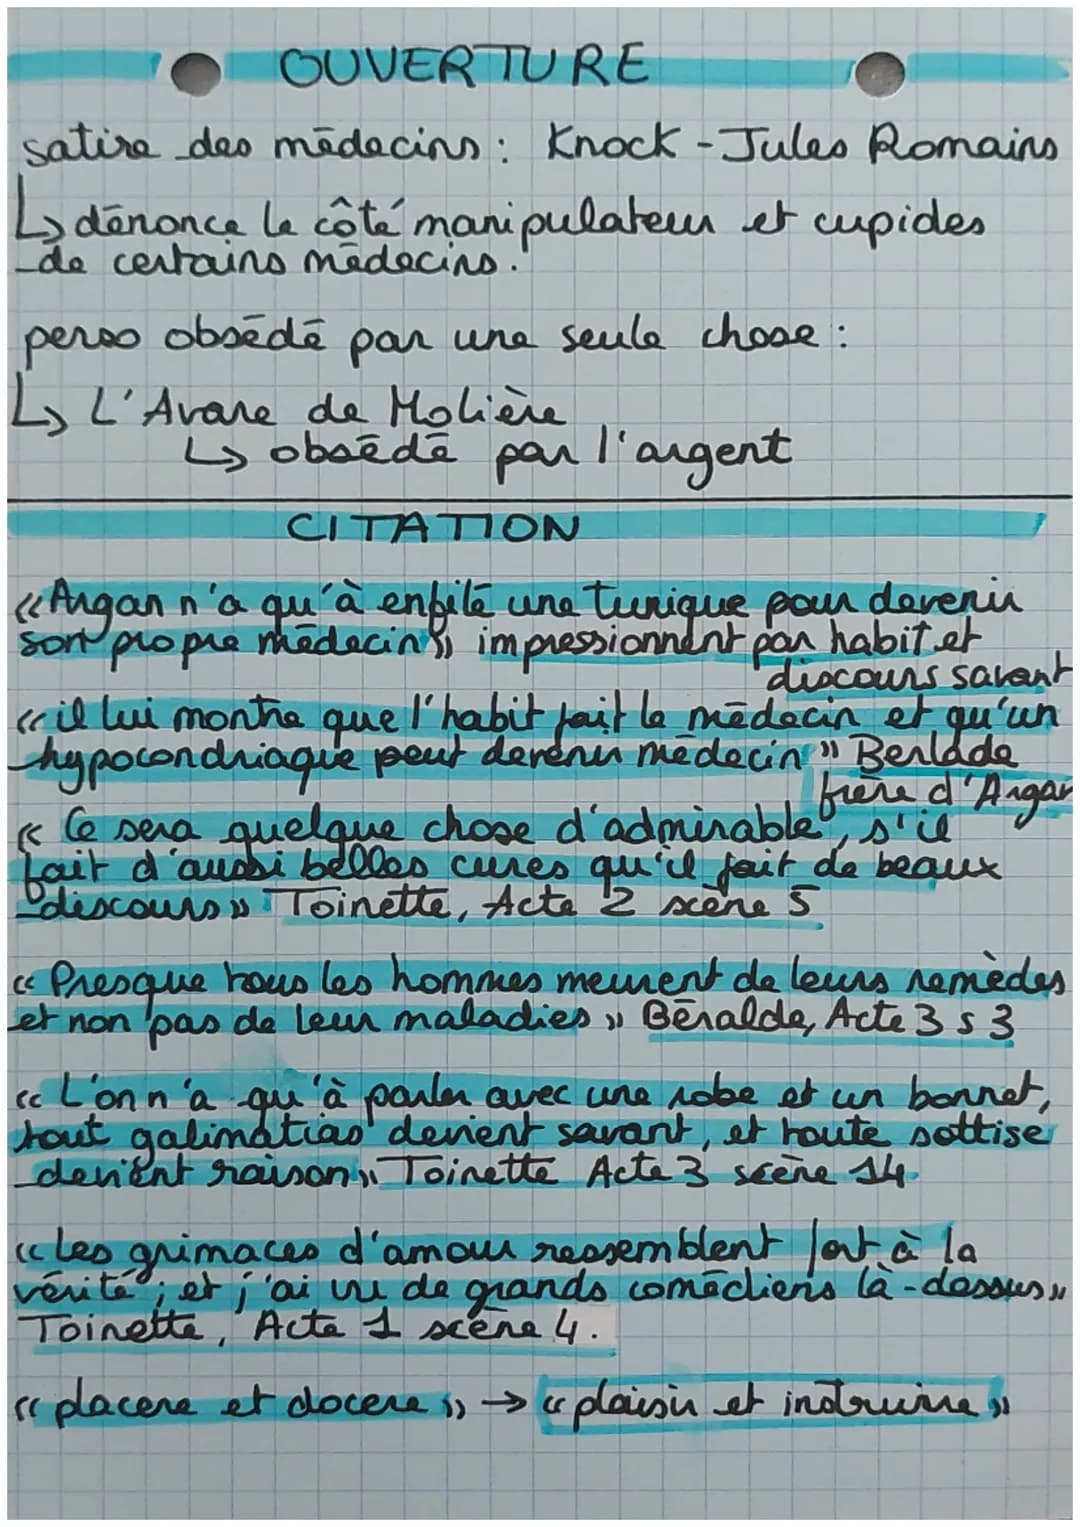 OUVERTURE
satire des médecins : Knock - Jules Romains
↳ dénonce le côté manipulateur et cupides
de certains médecins.
perso obsédé par une seule chose :
↳ L'Avare de Molière
↳ obsédé par l'argent
CITATION
« Argan n'a qu'à enfilé une tunique pour devenir
son propre médecin » impressionnent par habit et
discours savant
« il lui montre que l'habit fait le médecin et qu'un
hypocondriaque peut devenir médecin » Berlade
frère d'Argan
« Ce sera quelque chose d'admirable, s'il
fait d'aussi belles cures qu'il fait de beaux
discours » Toinette, Acte 2 scène 5
« Presque tous les hommes meurent de leurs remèdes
et non pas de leur maladies » Béralde, Acte 3 s 3
« L'on n'a qu'à parler avec une robe et un bonnet,
tout galimatias devient savant, et toute sottise
devient raison » Toinette Acte 3 scène 14
« Les grimaces d'amour ressemblent fort à la
vérité ; et j'ai vu de grands comédiens là-dessus »
Toinette, Acte 1 scène 4.
« placere et docere » → « plaisir et instruire »